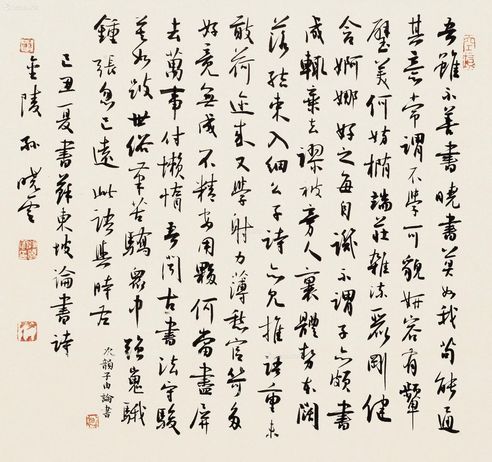 吾雖不善書曉書莫如我苟能通
其意常謂不學可貌妍容有顰
璧美何妨橢端莊雜流麗剛健
含婀娜好之每自譏不謂子亦頗書
成輒棄去謬被旁人裹體勢本闊
落結束入細么子詩亦見推語重未
敢荷邇來又學射力薄愁官笴多
好竟無成不精安用夥何當盡屏
去萬事付懶惰吾聞古書法守駿
莫如跛世俗筆苦驕眾中強嵬騀
鍾張忽已遠此語與時左
次韻子由論書
己丑夏書蘇東坡論書詩
金陵孫曉雲